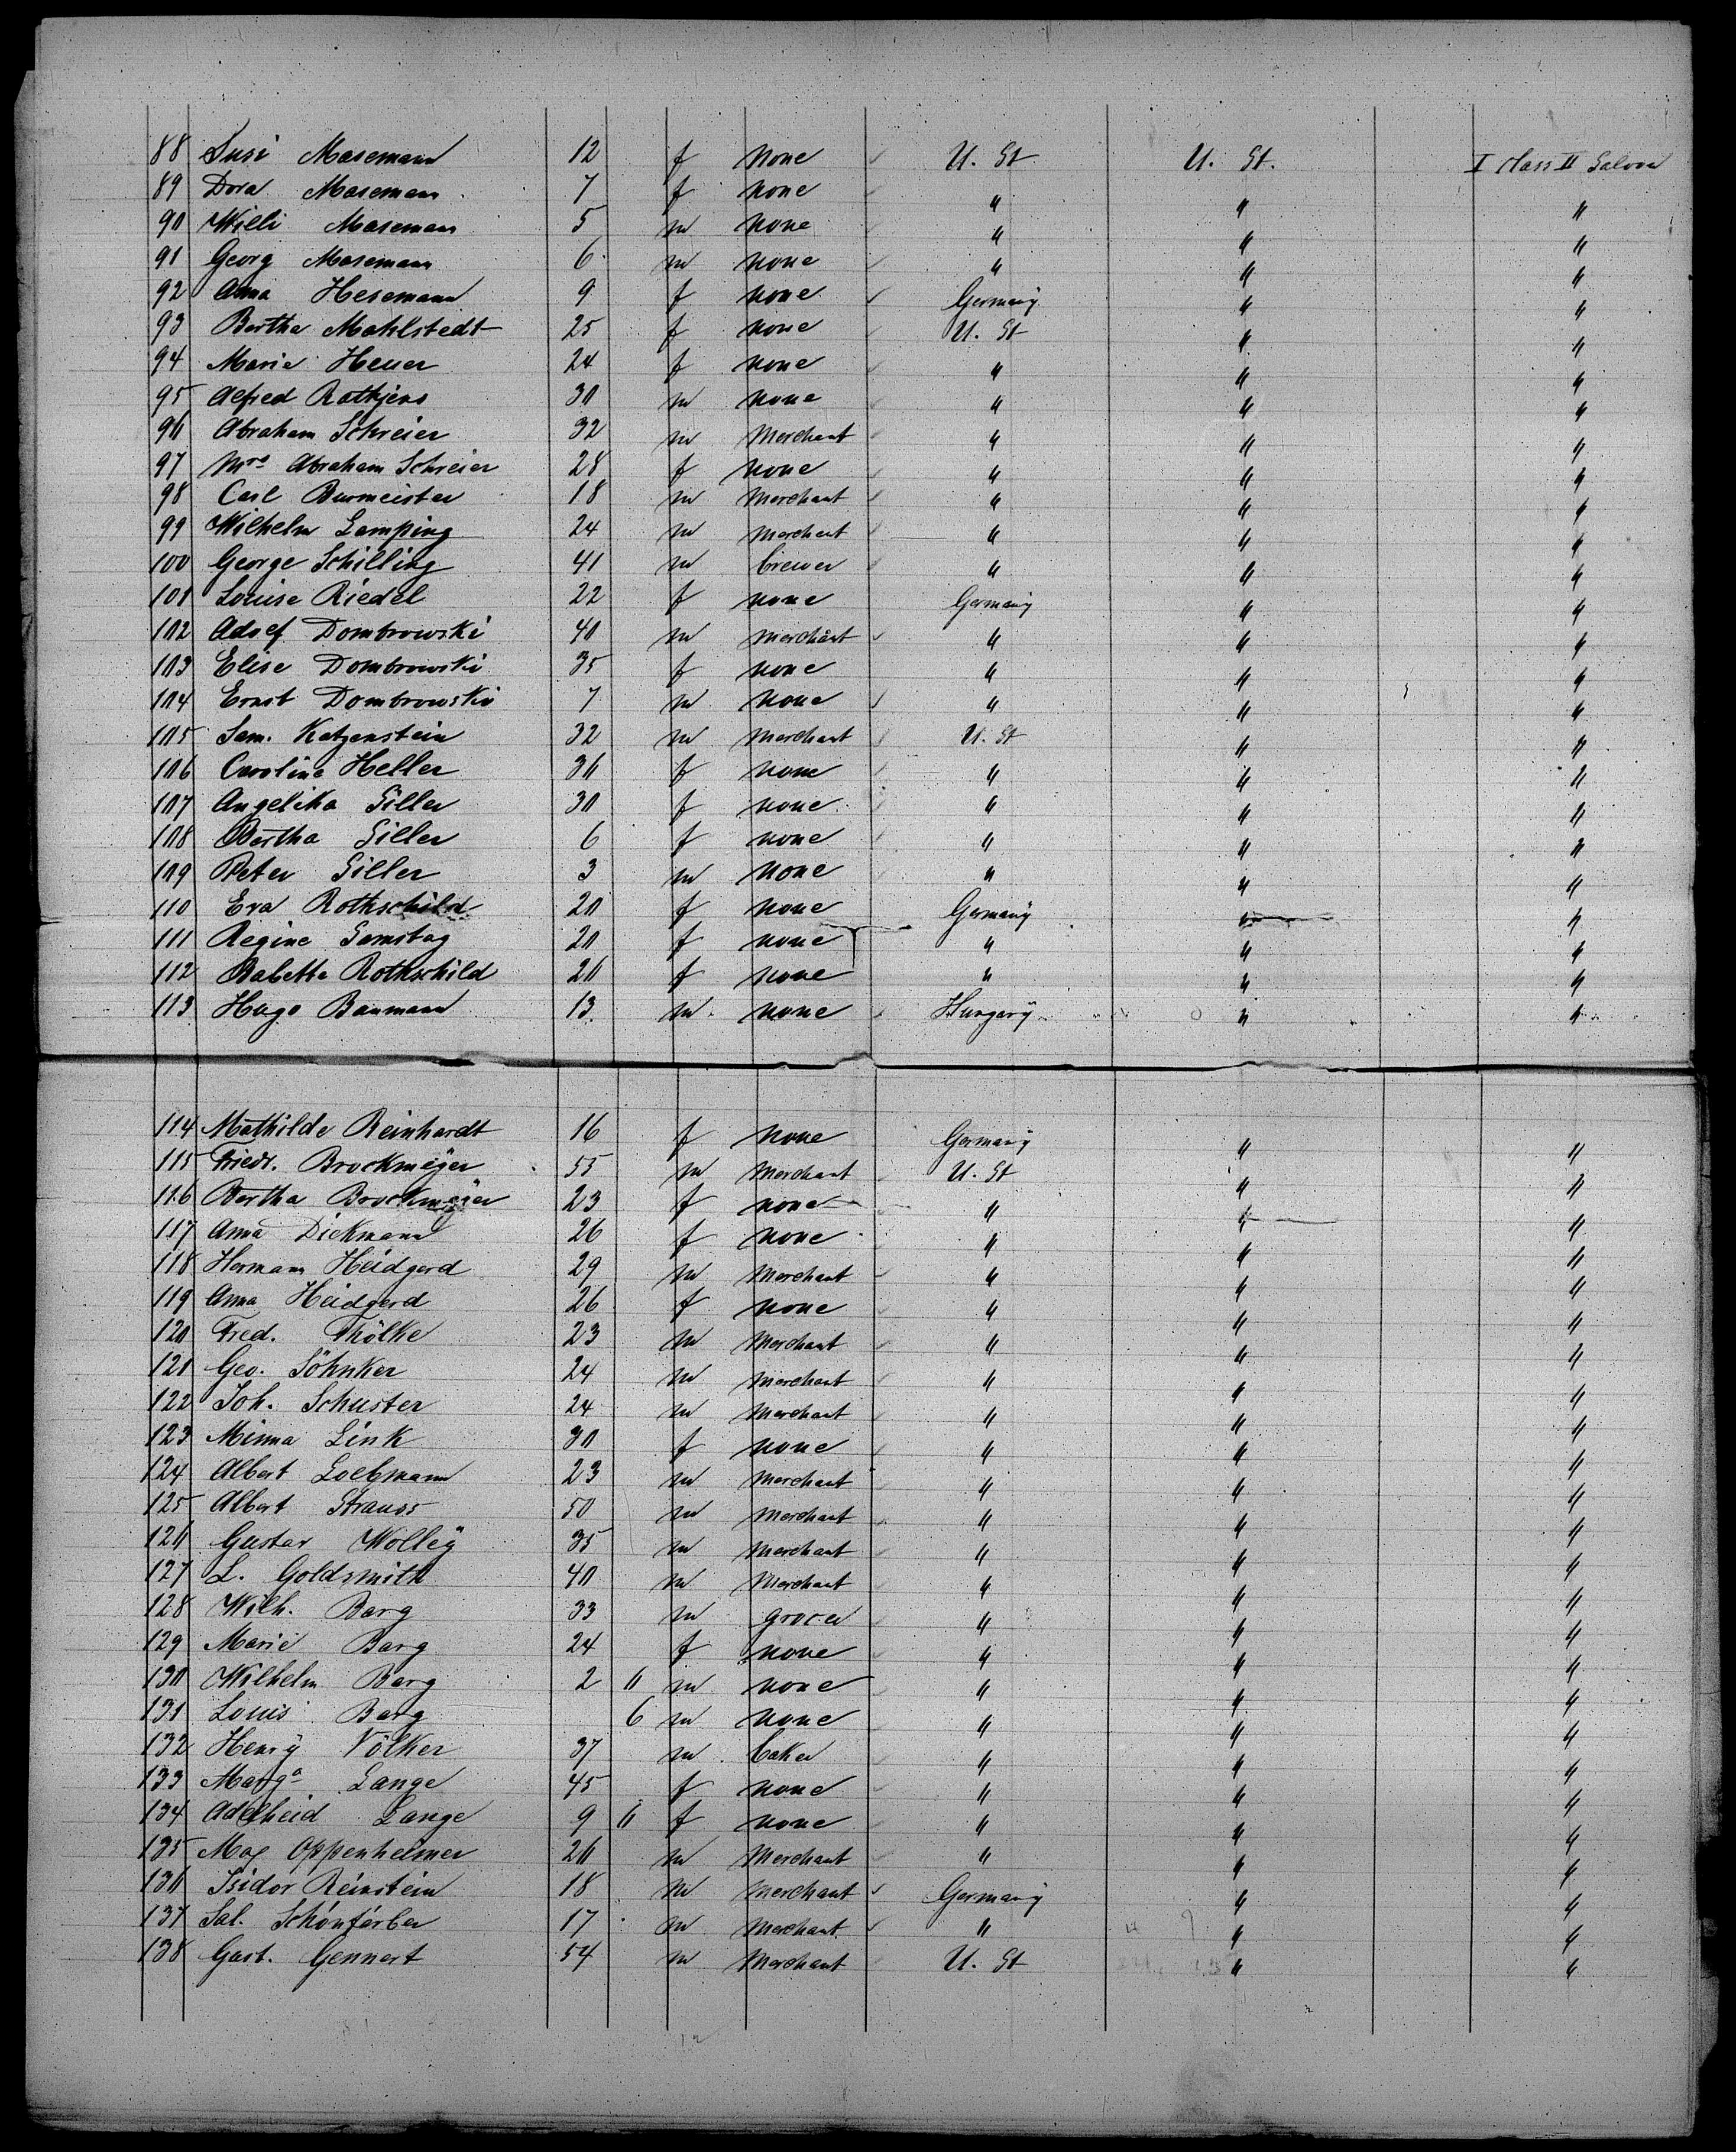 88 Susi Masemann 12 f none U. St U. St. I class II Saloon
89 Dora Masemann 7 f none " " "
90 Willi Masemann 5 m none " " "
91 Georg Masemann 6 m none " " "
92 Anna Hesemann 9 f none Germany " "
93 Bertha Mahlstedt 25 f none U. St " "
94 Marie Heuer 24 f none " " "
95 Alfred Rathjens 30 m none " " "
96 Abraham Schreier 32 m Merchant " " "
97 Mrs Abraham Schreier 28 f none " " "
98 Carl Burmeister 18 m Merchant " " "
99 Wilhelm Lamping 24 m Merchant " " "
100 George Schilling 41 m brewer " " "
101 Louise Riedel 22 f none Germany " "
102 Adolf Dombrowski 40 m merchant " " "
103 Elise Dombrowski 35 f none " " "
104 Ernst Dombrowski 7 m none " " "
105 Sam. Katzenstein 32 m Merchant U. St " "
106 Caroline Heller 36 f none " " "
107 Angelika Siller 30 f none " " "
108 Bertha Siller 6 f none " " "
109 Peter Siller 3 m none " " "
110 Eva Rothschild 20 f none Germany " "
111 Regine Samstag 20 f none " " "
112 Babette Rothschild 26 f none " " "
113 Hugo Baumann 13 m none Hungary " "
114 Mathilde Reinhardt 16 f none Germany " "
115 Friedr. Brockmeyer 55 m Merchant U. St " "
116 Bertha Brockmeyer 23 f none " " "
117 Anna Dickmann 26 f none " " "
118 Hermann Heidgerd 29 m Merchant " " "
119 Anna Heidgerd 26 f none " " "
120 Fred. Thölke 23 m Merchant " " "
121 Geo. Söhnker 24 m Merchant " " "
122 Joh. Schuster 24 m Merchant " " "
123 Minna Link 30 f none " " "
124 Albert Loebmann 23 m Merchant " " "
125 Albert Strauss 50 m Merchant " " "
126 Gustav Wolley 35 m Merchant " " "
127 L. Goldsmith 40 m Merchant " " "
128 Wilh. Barg 33 m grocer " " "
129 Marie Barg 24 f none " " "
130 Wilhelm Barg 2 6 m none " " "
131 Louis Barg 6 m none " " "
132 Henry Völker 37 m baker " " "
133 Marga Lange 45 f none " " "
134 Adelheid Lange 9 6 f none " " "
135 Max Oppenheimer 26 m Merchant " " "
136 Isidor Reinstein 18 m Merchant Germany " "
137 Sal. Schönfärber 17 m Merchant " " "
138 Gust. Gennert 54 m Merchant U. St " "